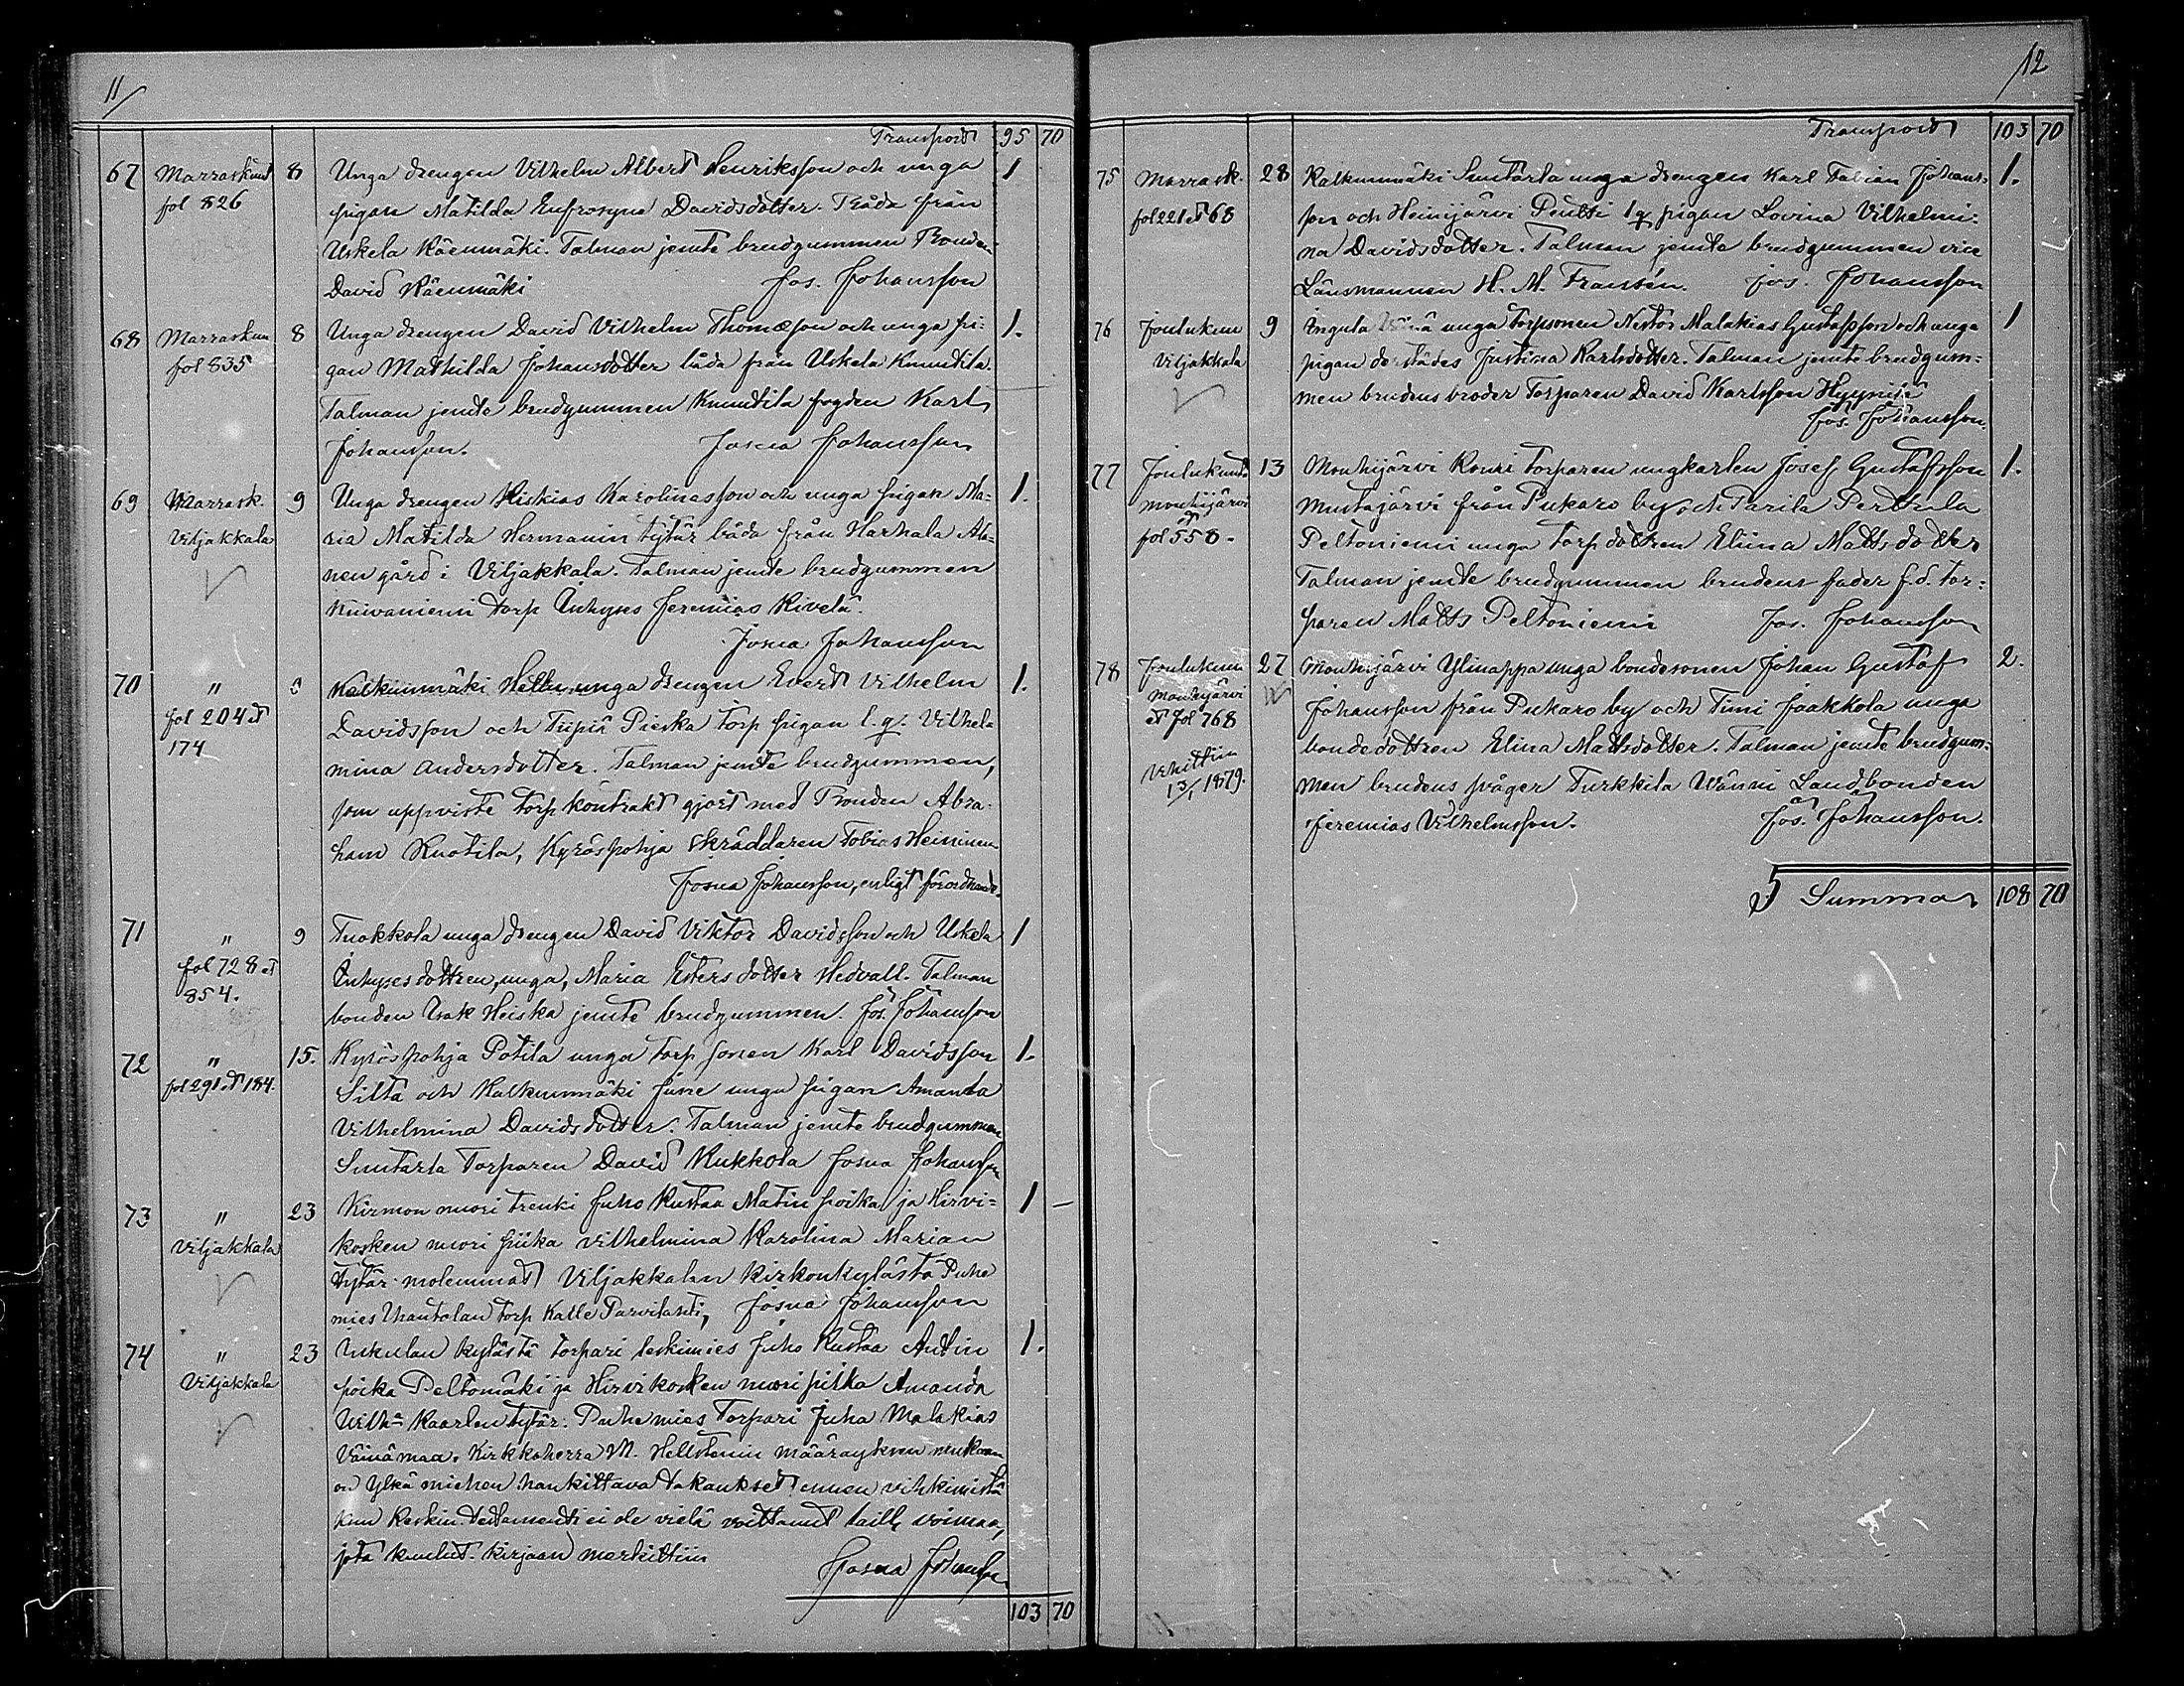 11/
Transport 95 70
67 Marraskuut 8 Unga drengen Vilhelm Albert Henriksson och unga 1
fol 826 pigan Matilda Eufrosyna Davidsdotter. Båda från
Uskela Räenmäki. Talman jemte brudgummen Bonden
David Räenmäki Jos. Johansson
68 Marraskuu 8 Unga drengen David Vilhelm Thomasson och unga pi- 1.
fol 835 gan Mathilda Johansdotter båda från Uskela Knuutila.
Talman jemte brudgummen Knuutila fogden Karl
Johansson. Josua Johansson
69 Marrask. 9 Unga drengen Hiskias Karolinasson och unga pigan Ma- 1.
Viljakkala ria Matilda Hermanin tytär båda från Harhala Ala-
nen gård i Viljakkala. Talman jemte brudgummen
Kuivaniemi torp Inhyses Jeremias Kivelä.
Josua Johansson
70 " Kalkunmäki unga drengen Evert Vilhelm 1.
fol 204 et Davidsson och Tupiä Pieska torp pigan l. q. Vilhel-
174 mina Andersdotter. Talman jemte brudgummen,
som uppviste torp kontrakt gjort med Bonden Abra-
ham Kuotila, Kyröspohja skräddaren Tobias Heininen
Josua Johansson, enligt förordnande.
71 " 9 Tuokkola unga drengen David Viktor Davidsson och Uskela 1
fol 728 et Inhysesdottren, unga, Maria Estersdotter Hedvall. Talman
854. bonden Isak Heiska jemte brudgummen. Jos. Johansson
72 " 15. Kyröspohja Potila unga torpsonen Karl Davidsson 1.
fol 291 et 184. Silta och Kalkunmäki June unga pigan Amanda
Vilhelmina Davidsdotter. Talman jemte brudgummen
Simtarla Torparen David Kukkola Josua Johansson
73 " 23 Kirmon nuori trenki Juho Kustaa Matin poika ja Hirvi- 1 —
Viljakkala kosken nuori piika Vilhelmina Karolina Marian
tytär molemmat Viljakkalan kirkonkylästä Puhe
mies torp Kalle Parvilahti, Josua Johansson
74 " 23 Inkulan kylästä torpari leskimies Juho Kustaa Antin 1.
Viljakkala poika Peltomäki ja Hirvikosken nuori piika Amanda
Vilh:a Kaarlen tytär. Puhemies Torpari Juha Malakias
Väinämaa. Kirkkoherra M. Hellstenin määräyksen mukaan
on Ylkä miehen hankittava takaukset ennen vihkimistä
kun Keskin. testamenti ei ole vielä voittanut laill. voimaa,
jota kuulut. kirjaan merkittiin Josua Johansson
103 70
12
Transport 103 70
75 Marrask. 28 Kalkunmäki Simtarla unga drengen Karl Fabian Johans- 1.
fol 221 et 68 son och Heinijärvi Pentti l q pigan Lovina Vilhelmi-
na Davidsdotter. Talman jemte brudgummen vice
Länsmannen H. M. Fransén. Jos. Johansson
76 Joulukuu 9 Ingula unga torpsonen Nestor Malakias Gustafsson och unga 1
Viljakkala pigan derstädes Justina Karlsdotter. Talman jemte brudgum-
men brudens broder Torparen David Karlsson Hyynilä
Jos. Johansson.
77 Joulukuuta 13 Mouhijärvi Kouri Torparen ungkarlen Josef Gustafsson 1.
Mouhijärvi Mustajärvi från Pukaro by och Parila Perttula
et
fol 558. Peltoniemi unga torpdottren Eliina Mattsdotter
Talman jemte brudgummen brudens fader f.d. tor-
paren Matts Peltoniemi Jos. Johansson
78 Joulukuu 27 Mouhijärvi Ylinappa unga bondesonen Johan Gustaf 2.
Mouhijärvi Johansson från Pukaro by och Timi Jaakkola unga
et fol 768 bondedottren Elina Mattsdotter. Talman jemte brudgum-
Vihittiin men brudens svåger Turkkila Wänni Landbonden
13/1 1879. Jeremias Vilhelmsson. Jos. Johansson.
Summa 108 70